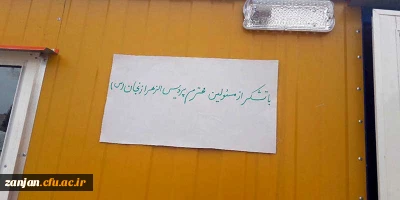 با تشکر از مسئولین محترم پردیس الزهرا زنجان (س)
zanjan.cfu.ac.ir